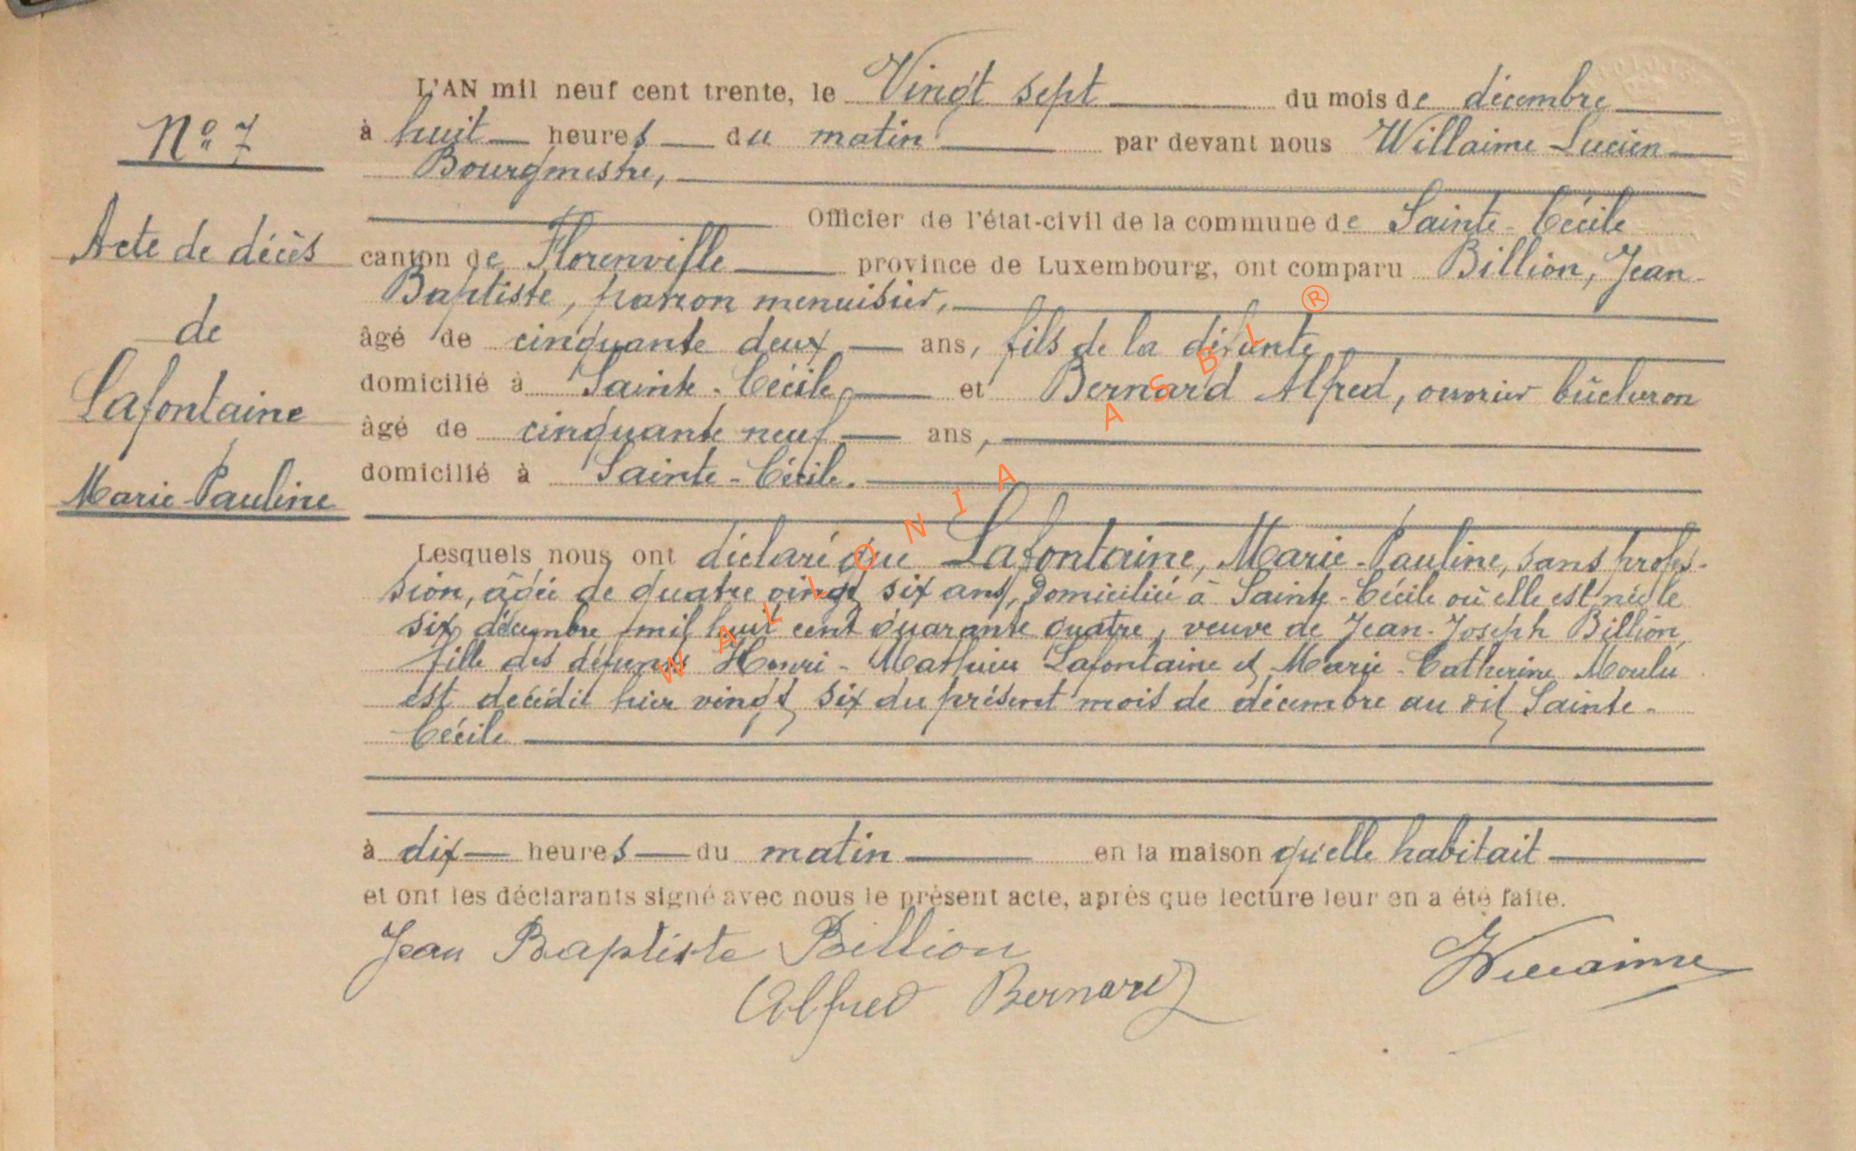 L'AN mil neuf cent trente, le Vingt sept du mois de décembre
N° 7
à huit heures du matin par devant nous Willaime Lucien
Bourgmestre,
Officier de l'état-civil de la commune de Sainte-Cécile
Acte de décès
canton de Florenville province de Luxembourg, ont comparu Billion, Jean
Baptiste, patron menuisier,
de
âgé de cinquante deux ans, fils de la défunte
domicilié à Sainte-Cécile et Bernard Alfred, ouvrier bûcheron
Lafontaine
âgé de cinquante neuf ans,
domicilié à Sainte-Cécile.
Marie-Pauline
Lesquels nous ont déclaré que Lafontaine, Marie-Pauline, sans profes-
sion, âgée de quatre vingt six ans, domiciliée à Sainte-Cécile où elle est née le
six décembre mil huit cent quarante quatre, veuve de Jean-Joseph Billion,
fille des défunts Henri-Mathieu Lafontaine et Marie-Catherine Moulu
est décédée hier vingt six du présent mois de décembre au dit Sainte-
Cécile
à dix heures du matin en la maison qu'elle habitait
et ont les déclarants signé avec nous le présent acte, après que lecture leur en a été faite.
Jean Baptiste Billion
Willaime
Alfred Bernard
WALLONIA ASBL ®